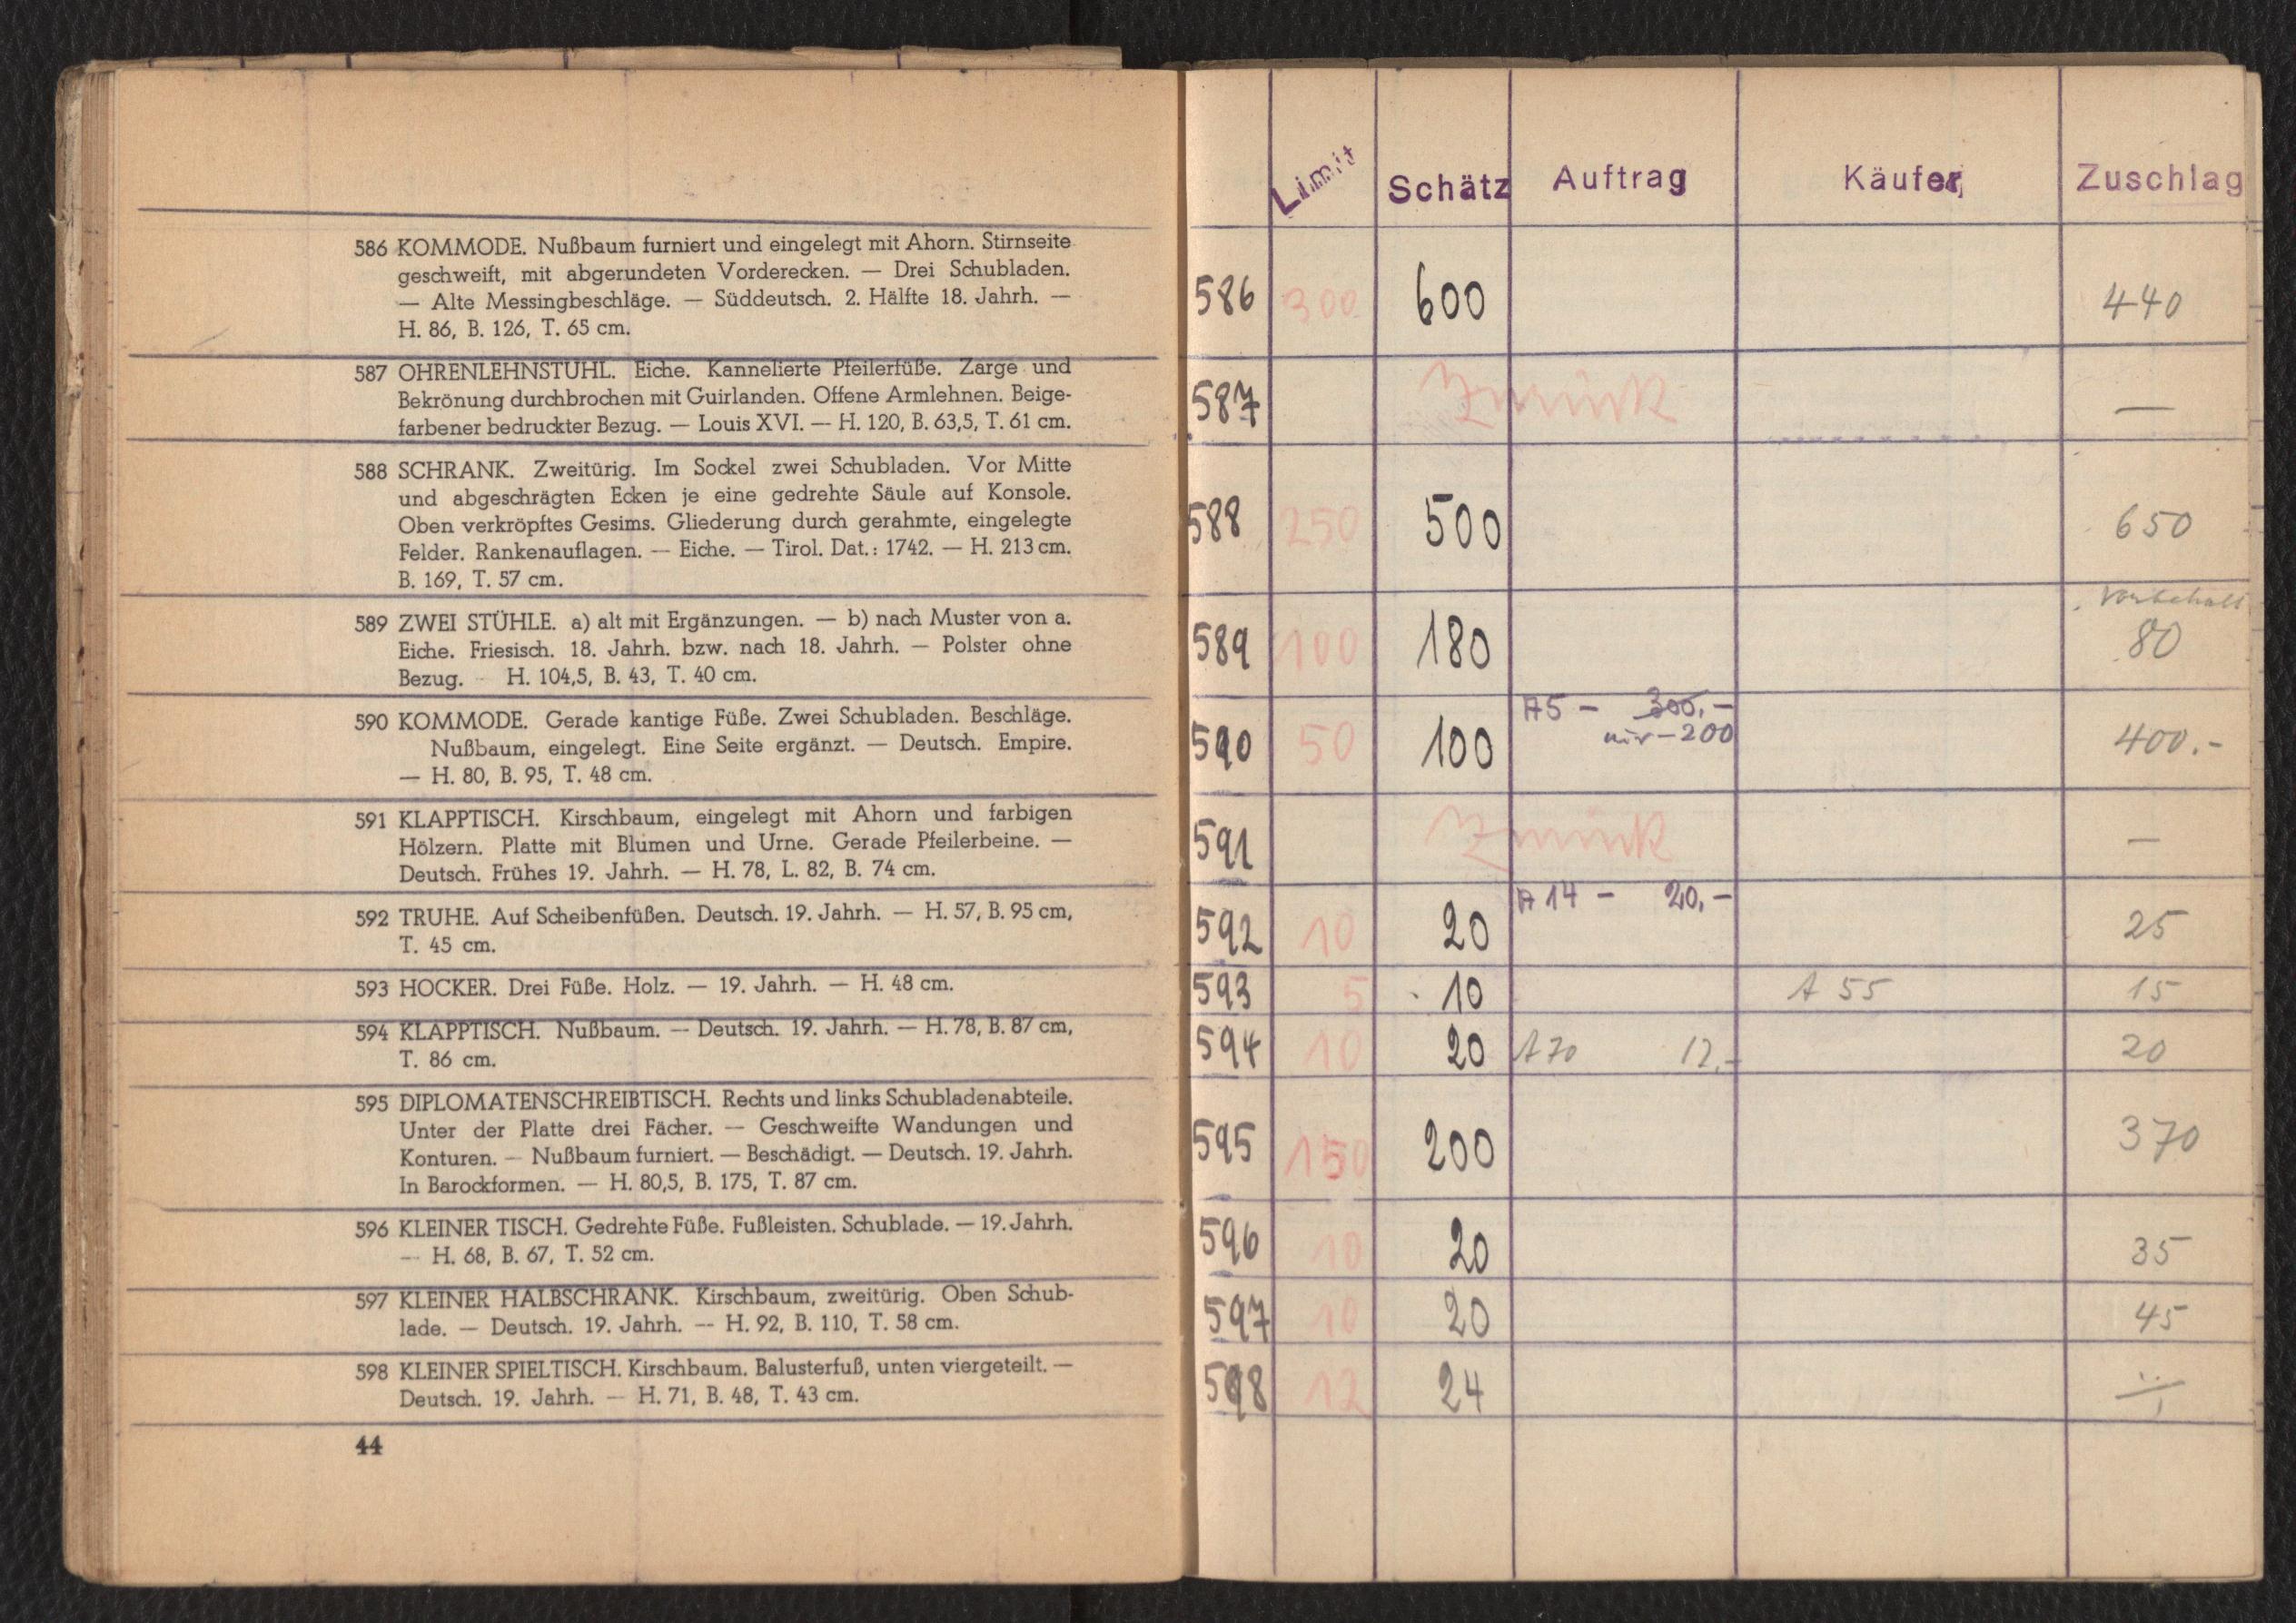 586 KOMMODE. Nußbaum furniert und eingelegt mit Ahorn. Stirnseite
geschweift, mit abgerundeten Vorderecken. — Drei Schubladen.
— Alte Messingbeschläge. — Süddeutsch. 2. Hälfte 18. Jahrh. —
H. 86, B. 126, T. 65 cm.
587 OHRENLEHNSTUHL. Eiche. Kannelierte Pfeilerfüße. Zarge und
Bekrönung durchbrochen mit Guirlanden. Offene Armlehnen. Beige-
farbener bedruckter Bezug. — Louis XVI. — H. 120, B. 63,5, T. 61 cm.
588 SCHRANK. Zweitürig. Im Sockel zwei Schubladen. Vor Mitte
und abgeschrägten Ecken je eine gedrehte Säule auf Konsole.
Oben verkröpftes Gesims. Gliederung durch gerahmte, eingelegte
Felder. Rankenauflagen. — Eiche. — Tirol. Dat.: 1742. — H. 213 cm.
B. 169, T. 57 cm.
589 ZWEI STÜHLE. a) alt mit Ergänzungen. — b) nach Muster von a.
Eiche. Friesisch. 18. Jahrh. bzw. nach 18. Jahrh. — Polster ohne
Bezug. - H. 104,5, B. 43, T. 40 cm.
590 KOMMODE. Gerade kantige Füße. Zwei Schubladen. Beschläge.
Nußbaum, eingelegt. Eine Seite ergänzt. — Deutsch. Empire.
— H. 80, B. 95, T. 48 cm.
591 KLAPPTISCH. Kirschbaum, eingelegt mit Ahorn und farbigen
Hölzern. Platte mit Blumen und Urne. Gerade Pfeilerbeine. —
Deutsch. Frühes 19. Jahrh. — H. 78, L. 82, B. 74 cm.
592 TRUHE. Auf Scheibenfüßen. Deutsch. 19. Jahrh. — H. 57, B. 95 cm,
T. 45 cm.
593 HOCKER. Drei Füße. Holz. — 19. Jahrh. — H. 48 cm.
594 KLAPPTISCH. Nußbaum. — Deutsch. 19. Jahrh. — H. 78, B. 87 cm,
T. 86 cm.
595 DIPLOMATENSCHREIBTISCH. Rechts und links Schubladenabteile.
Unter der Platte drei Fächer. — Geschweifte Wandungen und
Konturen. — Nußbaum furniert. — Beschädigt. — Deutsch. 19. Jahrh.
In Barockformen. — H. 80,5, B. 175, T. 87 cm.
596 KLEINER TISCH. Gedrehte Füße. Fußleisten. Schublade. — 19. Jahrh.
— H. 68, B. 67, T. 52 cm.
597 KLEINER HALBSCHRANK. Kirschbaum, zweitürig. Oben Schub-
lade. — Deutsch. 19. Jahrh. — H. 92, B. 110, T. 58 cm.
598 KLEINER SPIELTISCH. Kirschbaum. Balusterfuß, unten viergeteilt. —
Deutsch. 19. Jahrh. — H. 71, B. 48, T. 43 cm.
44
Limit Schätz Auftrag Käufer Zuschlag
586 300 600 440
587 Zurück —
588 250 500 650
Vorbehalt
589 100 180 80
A5 - 300,-
590 50 100 nir - 200 400.-
591 Zurück —
A 14 - 20,-
592 10 20 25
593 5 10 A 55 15
594 10 20 A 70 12,- 20
595 150 200 370
596 10 20 35
597 10 20 45
598 12 24 ÷